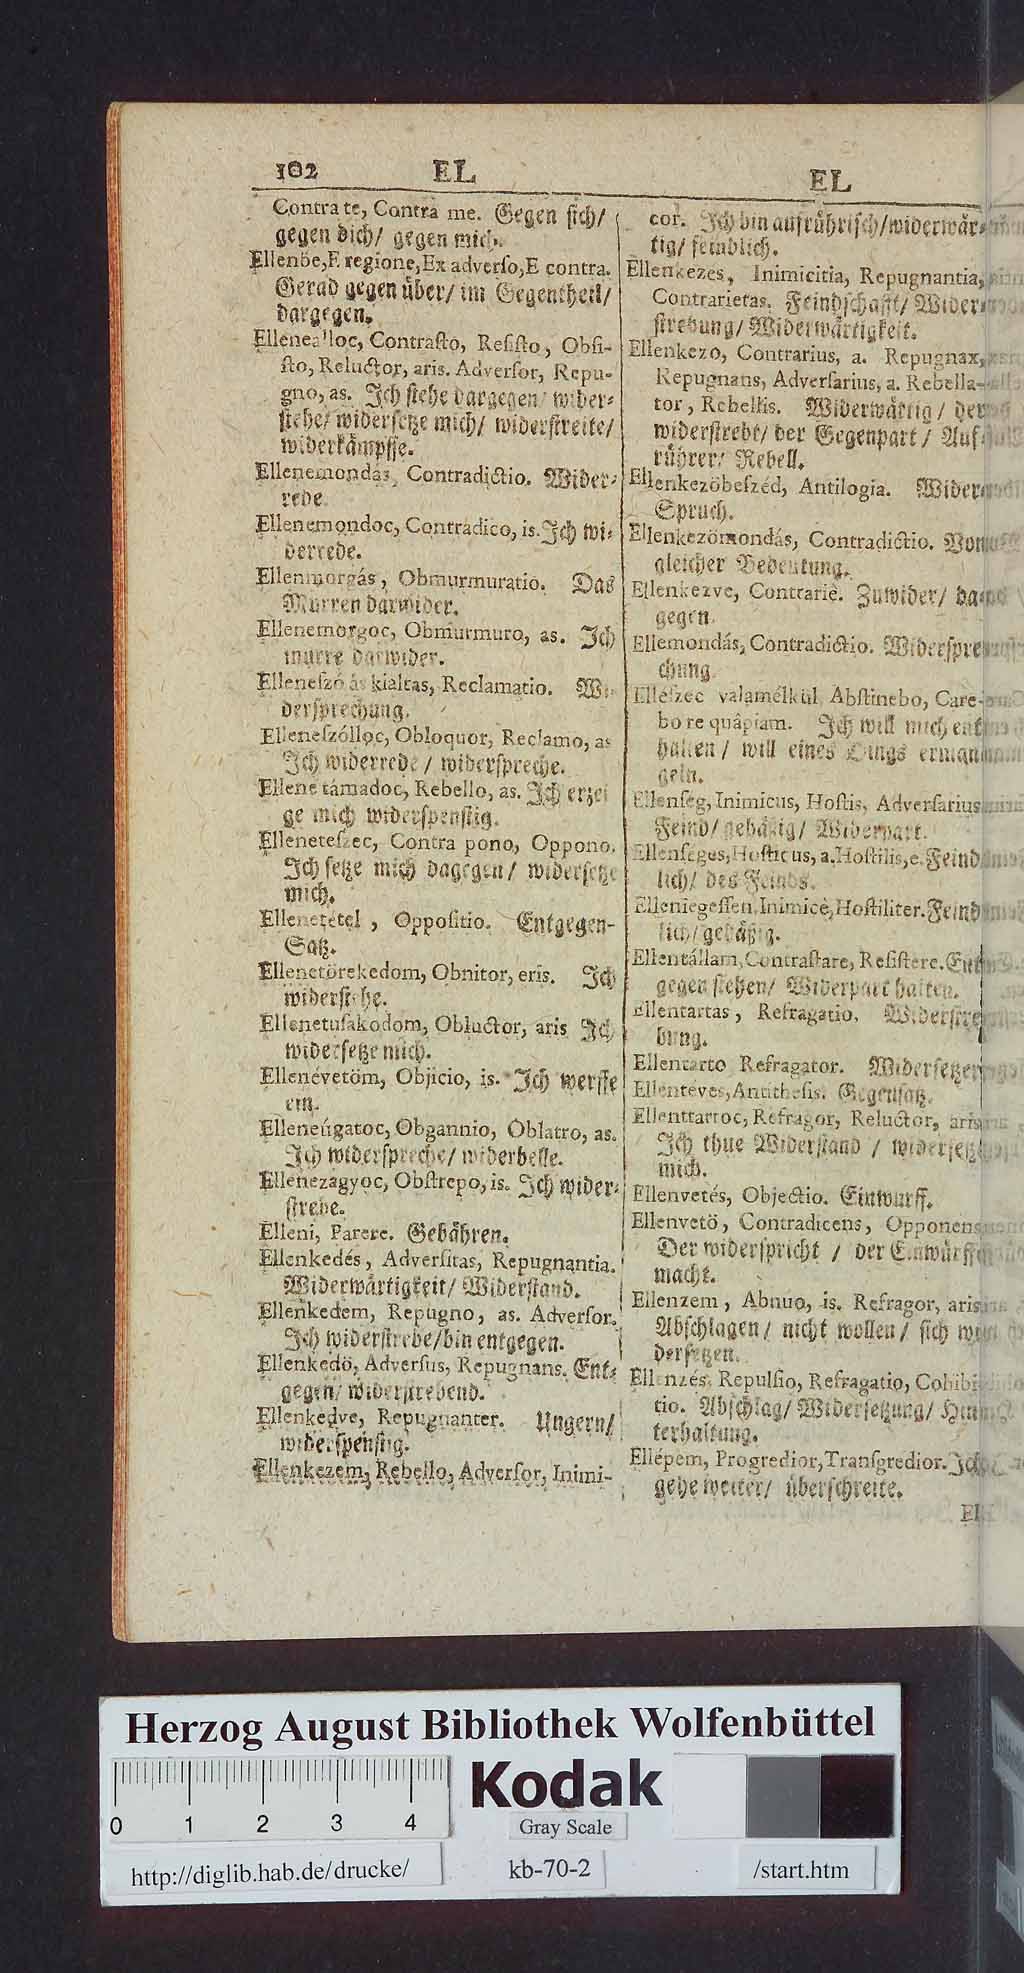 102 EL
Contra te, Contra me. Gegen ſich/
gegen dich/ gegen mich.
Ellenöe, E regione, Ex adverſo, E contra.
Gerad gegen über/ im Gegentheil/
dargegen.
Ellene loc, Contraſto, Reſiſto, Obſi-
ſto, Reluctor, aris. Adverſor, Repu-
gno, as. Ich ſtehe dargegen/ wider-
ſtehe/ widerſetze mich/ widerſtreite/
widerkämpffe.
Ellenemondás, Contradictio. Wider-
rede.
Ellenemondoc, Contradico, is. Ich wi-
derrede.
Ellenmorgás, Obmurmuratio. Das
Murren darwider.
Ellenemorgoc, Obmurmuro, as. Ich
murre darwider.
Elleneſzó ás kialtas, Reclamatio. Wi-
derſprechung.
Elleneſzólloc, Obloquor, Reclamo, as
Ich widerrede/ widerſpreche.
Ellene támadoc, Rebello, as. Ich erzei
ge mich widerſpenſtig.
Elleneteſzec, Contra pono, Oppono.
Ich ſetze mich dagegen/ widerſetze
mich.
Ellenetétel, Oppoſitio. Entgegen-
Satz.
Ellenetörekedom, Obnitor, eris. Ich
widerſtehe.
Ellenetuſakodom, Obluctor, aris Ich
widerſetze mich.
Ellenévetöm, Objicio, is. Ich werffe
ein.
Elleneúgatoc, Obgannio, Oblatro, as.
Ich widerſpreche/ widerbelle.
Ellenezágyoc, Obſtrepo, is. Ich wider-
ſtrebe.
Elleni, Parere. Gebähren.
Ellenkedés, Adverſitas, Repugnantia.
Widerwärtigkeit/ Widerſtand.
Ellenkedem, Repugno, as. Adverſor.
Ich widerſtrebe/ bin entgegen.
Ellenkedö, Adverſus, Repugnans. Ent-
gegen/ widerſtrebend.
Ellenkedve, Repugnanter. Ungern/
widerſpenſtig.
Ellenkezem, Rebello, Adverſor, Inimi-
EL
cor. Ich bin auffrühriſch/ widerwär-
tig/ feindlich.
Ellenkezes, Inimicitia, Repugnantia,
Contrarietas. Feindſchafft/ Wider-
ſtrebung/ Widerwärtigkeit.
Ellenkezo, Contrarius, a. Repugnax,
Repugnans, Adverſarius, a. Rebella-
tor, Rebellis. Widerwärtig/ der
widerſtrebt/ der Gegenpart/ Auf-
rührer/ Rebell.
Ellenkezöbeſzéd, Antilogia. Wider-
Spruch.
Ellenkezömondás, Contradictio. Von
gleicher Bedeutung.
Ellenkezve, Contrariè. Zuwider/ da-
gegen.
Ellemondás, Contradictio. Widerſpre
chung.
Elléſzec valamélkül, Abſtinebo, Care-
bo re quâpiam. Ich will mich ent
halten/ will eines Dings erman
geln.
Ellenſeg, Inimicus, Hoſtis, Adverſarius
Feind/ gehäßig/ Widerpart.
Ellenſeges, Hoſticus, a. Hoſtilis, e. Feind
lich/ des Feinds.
Ellenſegeſſen, Inimicè, Hoſtiliter. Feind
lich/ gehäßig.
Ellentállam, Contraſtare, Reſiſtere. Ent
gegen ſtehen/ Widerpart halten.
Ellentartas, Refragatio. Widerſtre
bung.
Ellentarto Refragator. Widerſetzer
Ellentéves, Antitheſis. Gegenſatz.
Ellenttartoc, Refragor, Reluctor, aris
Ich thue Widerſtand/ widerſetze
mich.
Ellenvetés, Objectio. Einwurff.
Ellenvetö, Contradicens, Opponens
Der widerſpricht/ der Einwürff
macht.
Ellenzem, Abnuo, is. Refragor, aris
Abſchlagen/ nicht wollen/ ſich wi
derſetzen.
Ellenzés, Repulſio, Refragatio, Cohibi
tio. Abſchlag/ Widerſetzung/ Hin
terhaltung.
Ellépem, Progredior, Tranſgredior. Ich
gehe weiter/ überſchreite.
Herzog August Bibliothek Wolfenbüttel
0 1 2 3 4
Kodak
Gray Scale
http://diglib.hab.de/drucke/ kb-70-2 /start.htm